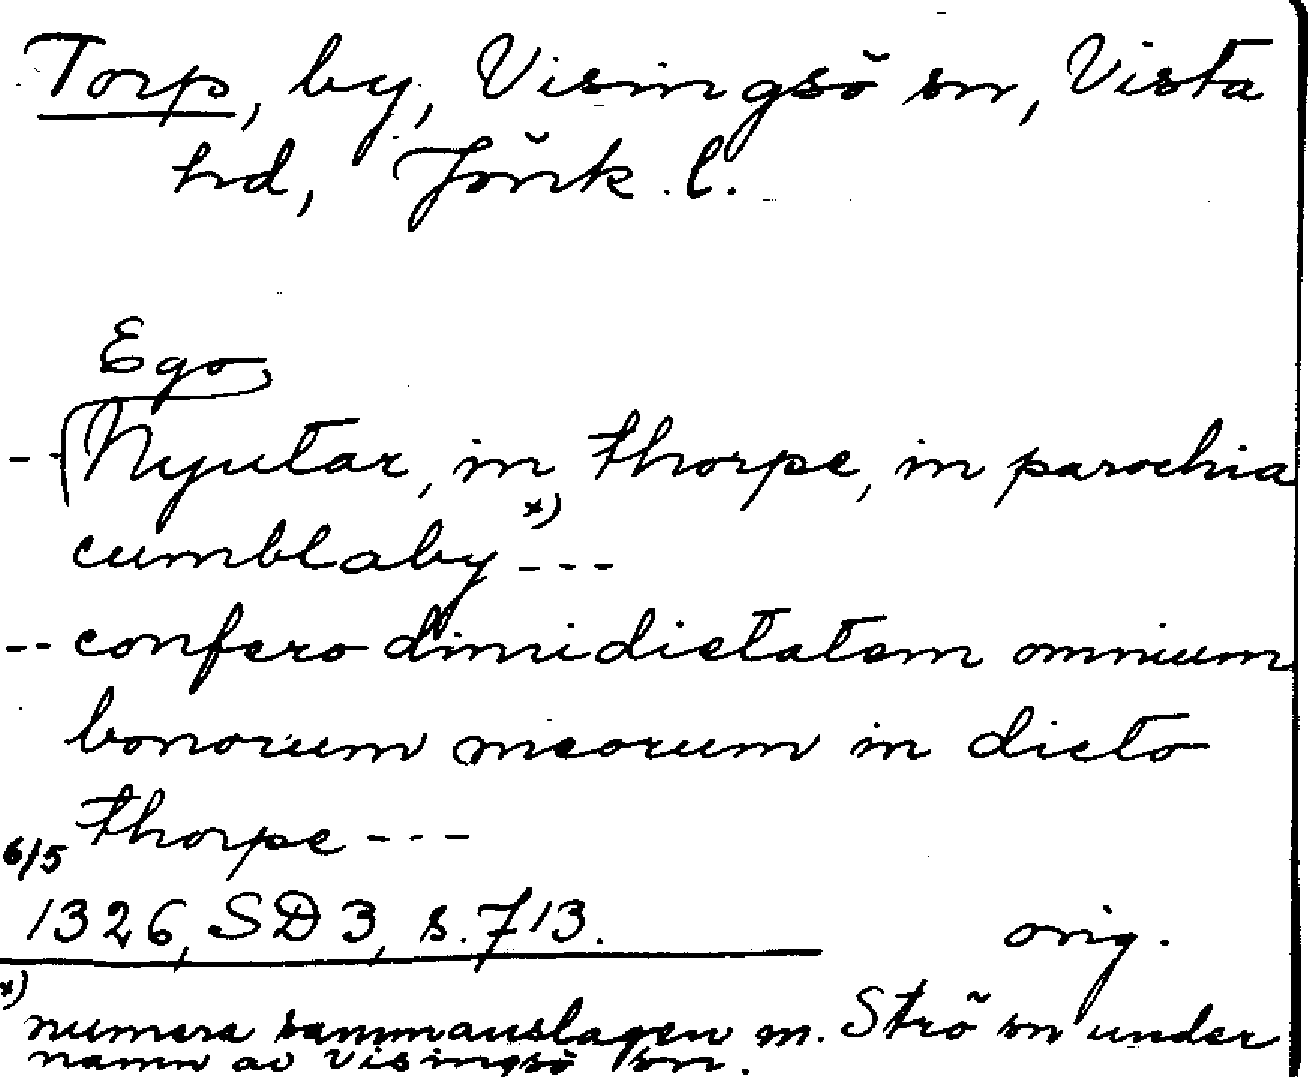 Torp, by, Visingsö sn, Vista
hd, Jönk. l.
Ego
-- Nyutar, in thorpe, in parochia
cumblaby x) ---
-- confero dimidietatem omnium
bonorum meorum in dicto
thorpe ---
6/5
1326, SD 3, s. 713. orig.
x) numera sammanslagen m. Strö sn under
namn av Visingsö sn.